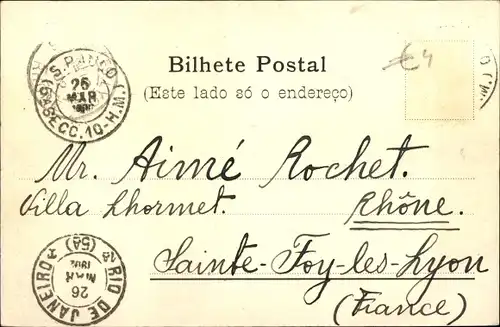 Bilhete Postal
(Este lado só o endereço)
€4
S. PAULO
26
MAR
SECC. 10-H.M.)
Mr. Aimé Rochet.
Villa Lhormet. Rhône.
Sainte-Foy-les-Lyon
(France)
RIO DE JANEIRO
(5A)
26
MAR
1902